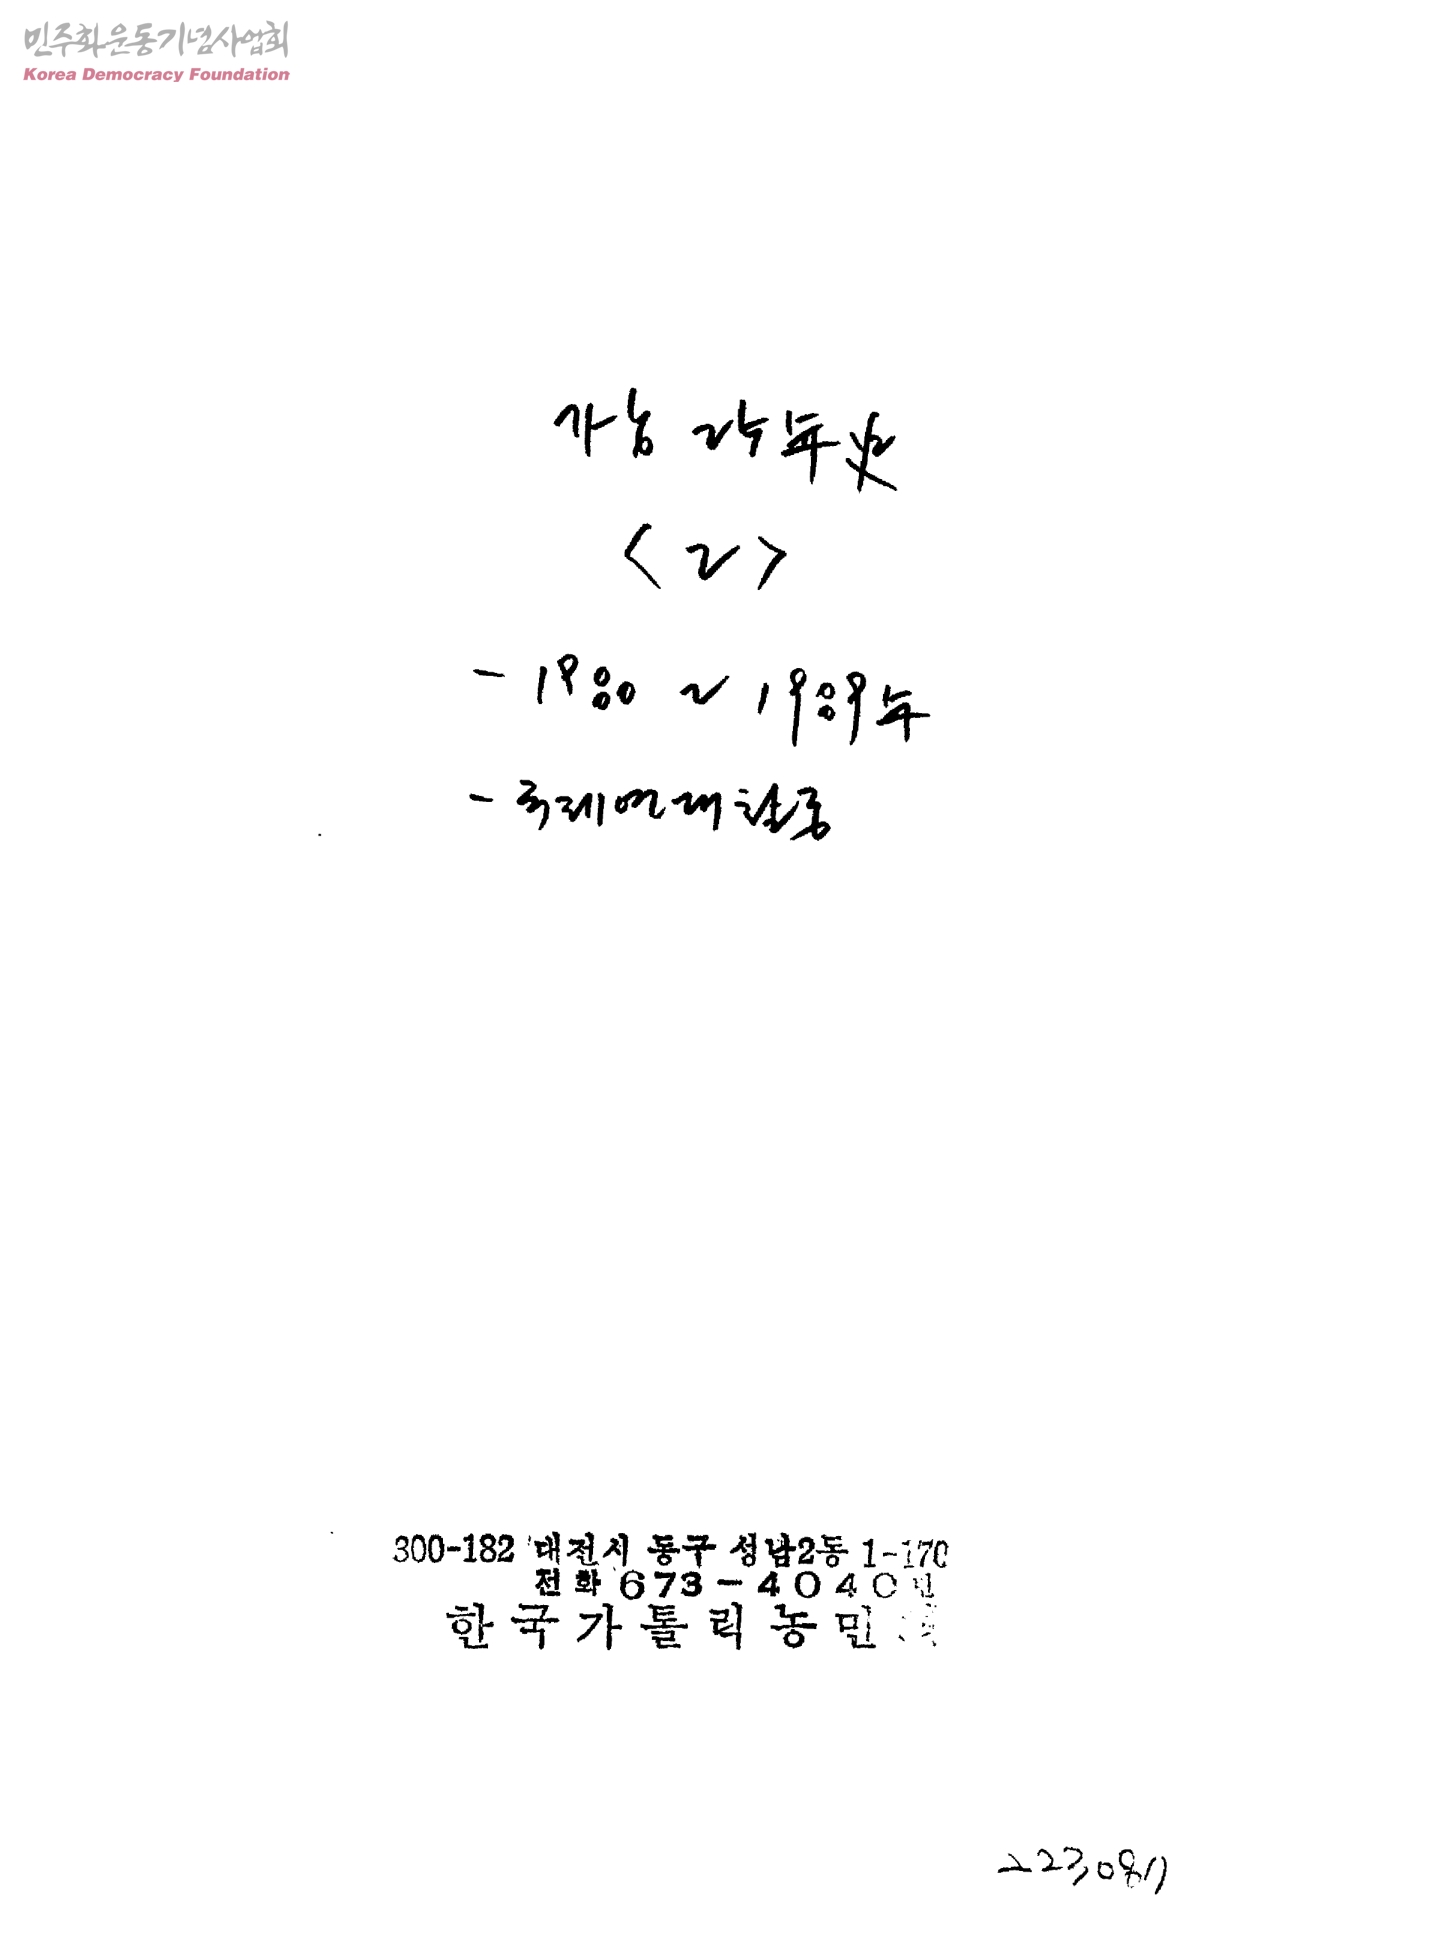 민주화운동기념사업회
Korea Democracy Foundation
가농 25年史
<2>
- 1980 ~ 1989年
- 국제연대활동
300-182 대전시 동구 성남2동 1-170
전화 673-4040번
한국가톨릭농민회